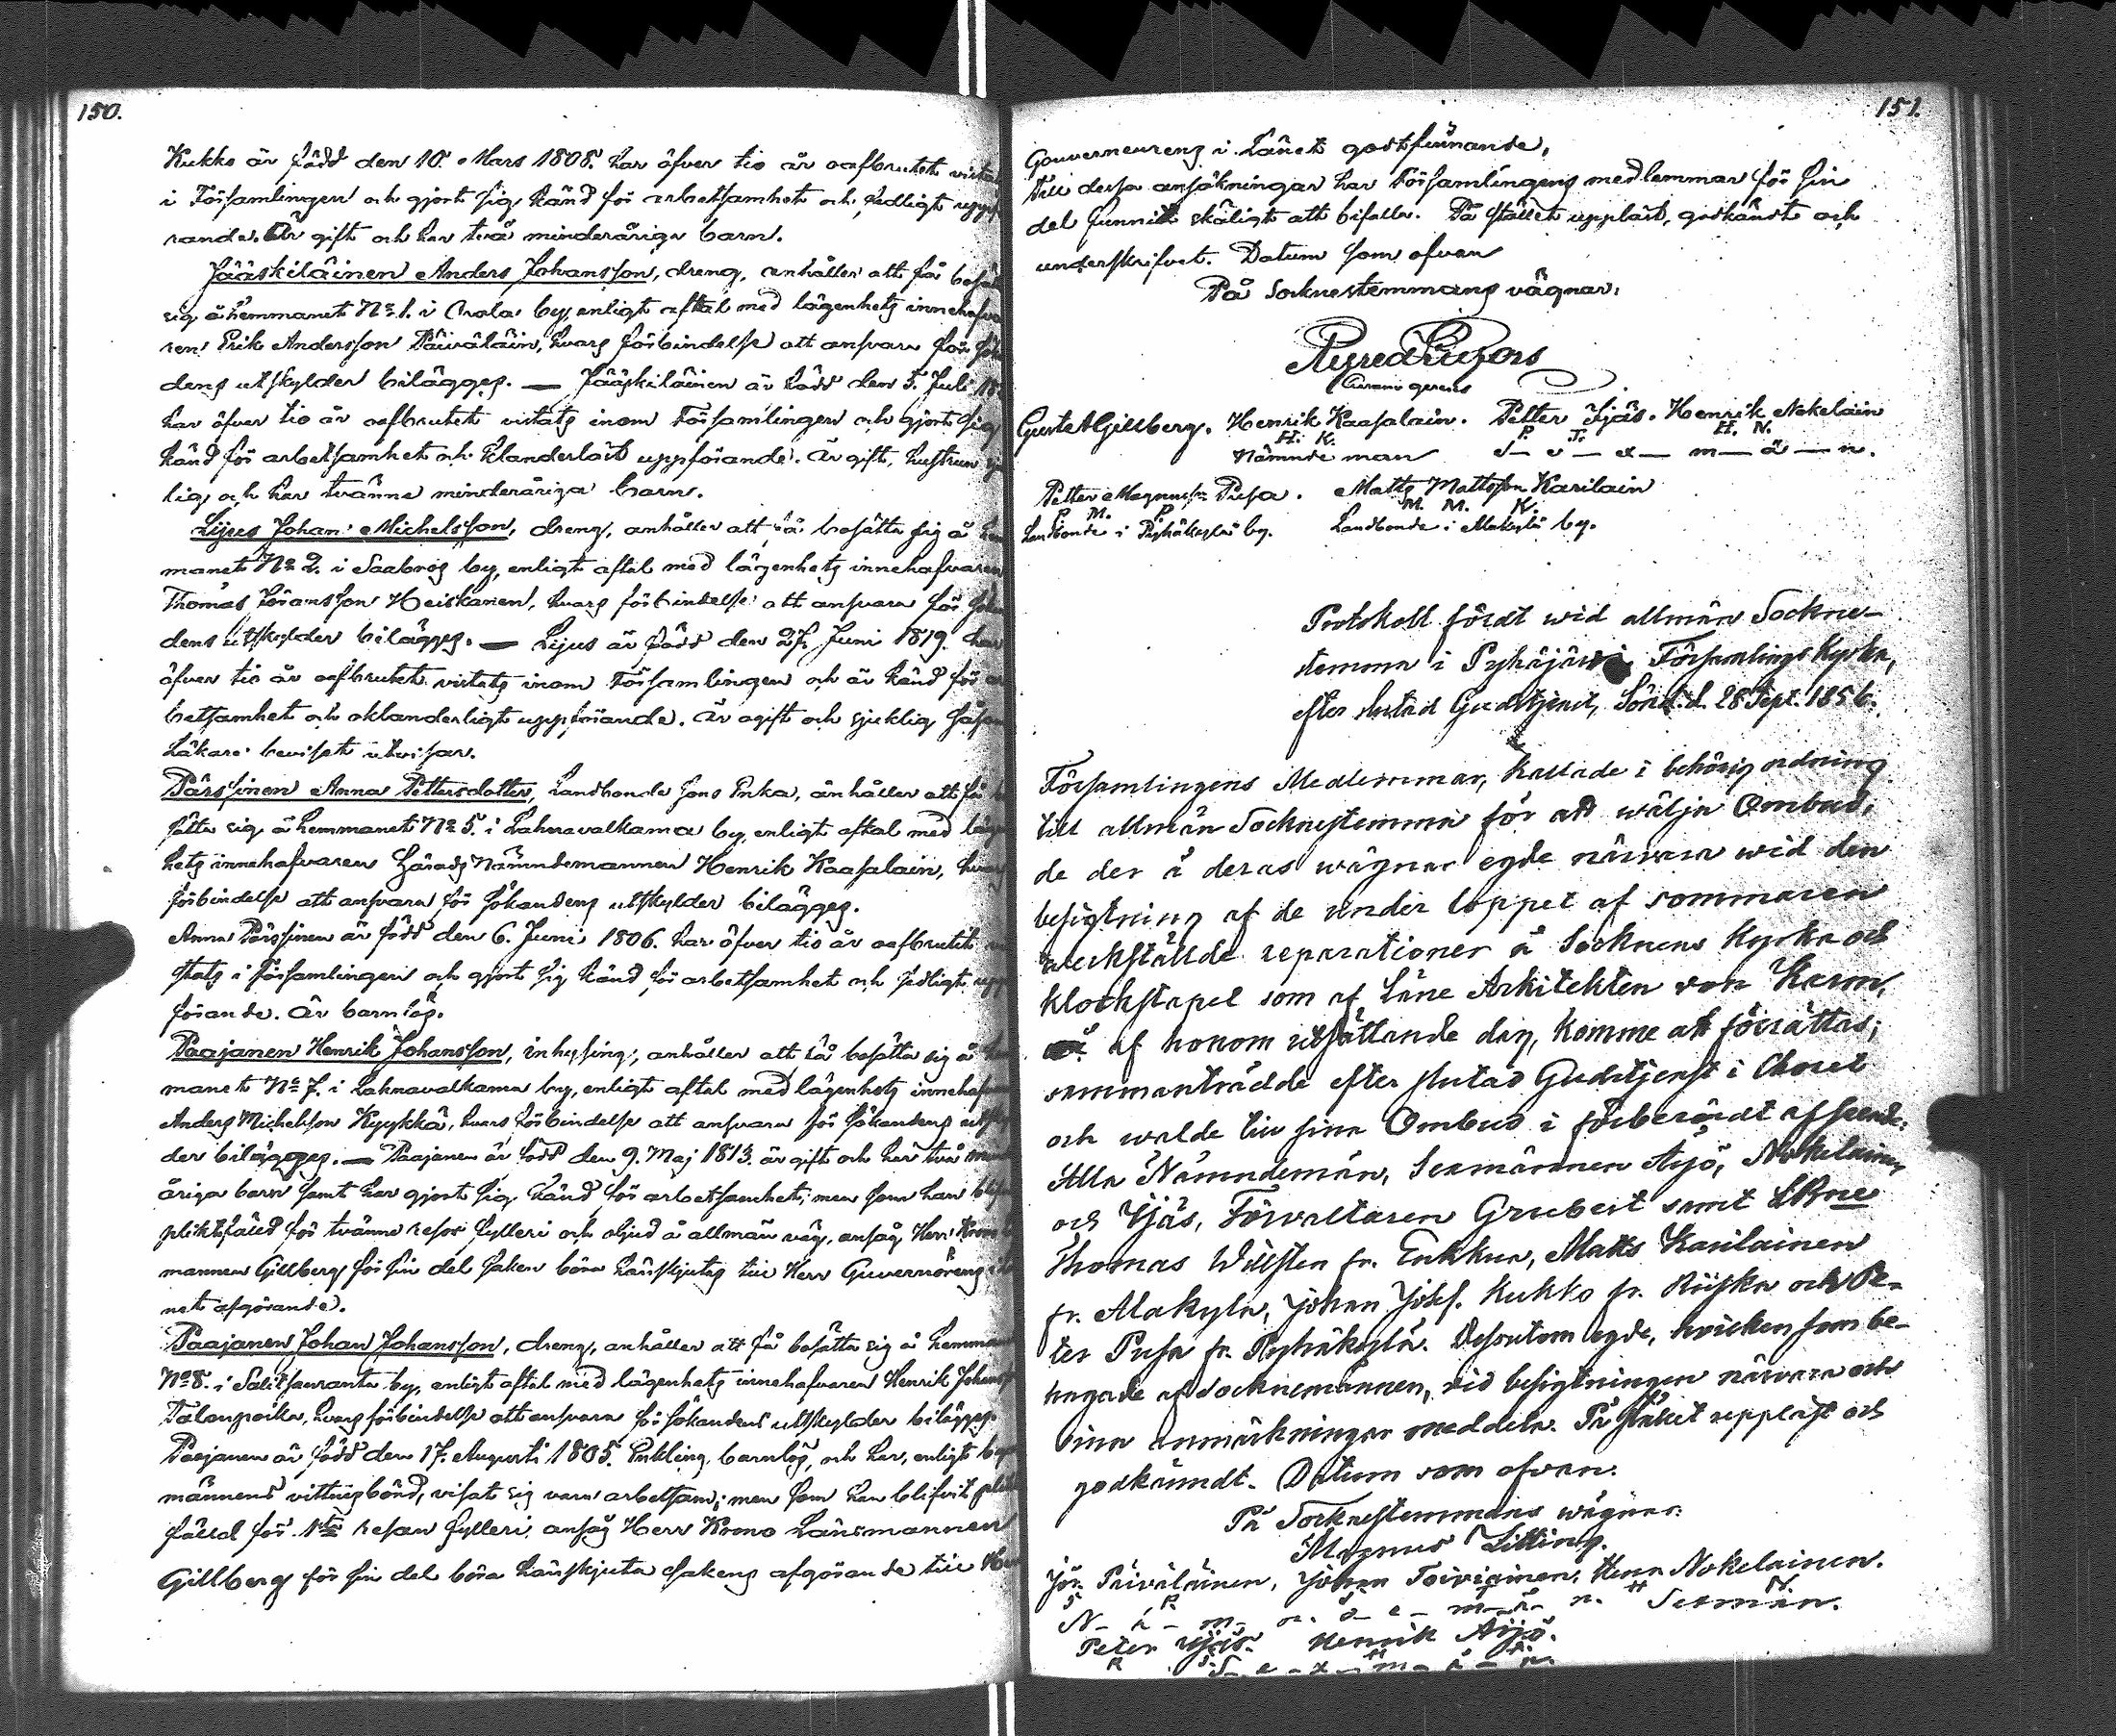 150.
Kukko är född den 10. Mars 1808. har öfver tio år oafbrutet vistat
i Församlingen och gjort sig känd för arbetsamhet och sedligt uppfö
rande. Är gift och har två minderåriga barn.
Jääskiläinen Anders Johansson, dreng, anhåller att få besät
sig å hemmanet No 1. i by, enligt aftal med lägenhets innehafva
ren Erik Andersson Päiväläin, hvars förbindelse att ansvara för sök
dens utskylder bilägges. — Jääskiläinen är född den 5. Juli 18
har öfver tio år oafbrutet vistats inom Församlingen och gjort sig
känd för arbetsamhet och klanderlöst uppförande. Är gift, hustrun sju
lig och har tvänne minderåriga barn.
Lijus Johan Michelsson, dreng, anhåller att få besätta sig å hem
manet No 2. i by, enligt aftal med lägenhets innehafvaren
Thomas Göransson Heiskanen, hvars förbindelse att ansvara för sökan
dens utskylder bilägges. — Lijus är född den 27. Juni 1819. har
öfver tio år oafbrutet vistats inom Församlingen och är känd för ar
betsamhet och oklanderligt uppförande. Är ogift och sjuklig såsom
Läkare beviset utvisar.
Pärssinen Anna Pettersdotter, Landbonde Sons Enka, anhåller att få be
sätta sig å hemmanet No 5. i Lahnavalkama by, enligt aftal med lägen
hets innehafvaren Härads Nämndemannen Henrik Kaasalain, hvars
förbindelse att ansvara för sökandens utskylder bilägges.
Anna Pärssinen är född den 6. Juni 1806. har öfver tio år oafbrutet vi
stats i Församlingen och gjort sig känd för arbetsamhet och sedligt upp
förande. Är barnlös.
Paajanen Henrik Johansson, inhysing, anhåller att få besätta sig å hem
manet No 7. i Lahnavalkama by, enligt aftal med lägenhets innehafvar
Anders Michelsson Kyykkä, hvars förbindelse att ansvara för sökandens utskyl
der bilägges. — Paajanen är född den 9. Maj 1813. är gift och har två mind
åriga barn samt har gjort sig känd för arbetsamhet; men som han blif
pliktfälld för tvänne resor fylleri och oljud å allmän väg, ansåg Herr Krono L
mannen Gillberg för sin del saken böra hänskjutas till Herr Guvernörens i Lä
nets afgörande.
Paajanen Johan Johansson, dreng, anhåller att få besätta sig å hemma
No 8. i Salitsanranta by, enligt aftal med lägenhets innehafvaren Henrik Johans
Talonpoika, hvars förbindelse att ansvara för sökandens utskylder bilägges.
Paajanen är född den 17. Augusti 1805. Enkling, barnlös, och har, enligt by
männens vittnesbörd, visat sig vara arbetsam; men som han blifvit plikt
fälld för 1sta resan fylleri, ansåg Herr Krono Länsmannen
Gillberg för sin del böra hänskjuta sakens afgörande till Herr
151.
Gouverneurens i Länet godtfinnande.
Till dessa ansökningar har Församlingens medlemmar för sin
del funnit skäligt att bifalla. På stället uppläst, godkändt och
underskrifvet. Datum som ofvan
På Socknestemmans vägnar:
Curam gerens
Gust. Ad. Gillberg. Henrik Kaasalain. Petter Yjäs. Henrik Nokelain
H. K. P. J. H. N.
Nämndeman S — e — x — m — ä — n.
Petter Magnuss. Pusa. Matts Mattsson Karilain
P. M. P. M. M. K.
Landbonde i Pyhäkylä by. Landbonde i Alakylä by.
Protokoll fördt wid allmän Sockne-
stemma i Pyhäjärwi Församlings Kyrka,
efter slutad Gudstjenst, Sönd. d. 28 Sept. 1856.
Församlingens Medlemmar, kallade i behörig ordning
till allmän Socknestemma för att wälja Ombud,
de der å deras wägnar egde närvara wid den
besigtning af de under loppet af sommaren
werkställde reparationer å Socknens Kyrka och
klockstapel som af Läne Arkitekten von Karm,
å af honom utsättande dag, komme att förrättas;
sammanträdde efter slutad Gudstjenst i Choret
och walde till sina Ombud i förberördt afseende:
Alla Nämndemän, Sexmännen Äijö, Nokelainen
och Yjäs, Förvaltaren Grubert samt LBne
Thomas Willsten fr. Enkkua, Matts Karilainen
fr. Alakylä, Johan Josef. Kukko fr. Riiska och Pe-
ter Pusa fr. Pyhäkylä. Dessutom egde, hvilken som be-
hagade af Socknemännen, vid besigtningen närvara och
sina anmärkningar meddela. På stället uppläst och
godkändt. Datum som ofvan.
På Socknestemmans wägnar:
Magnus Litting.
Jör. Päiväläinen, Johan Toiviainen, Henr. Nokelainen.
N - ä - m - n - d - e - m - ä - n. Sexmän.
Peter Yjäs. Henrik Äijö.
S - e - x - m - ä - n.